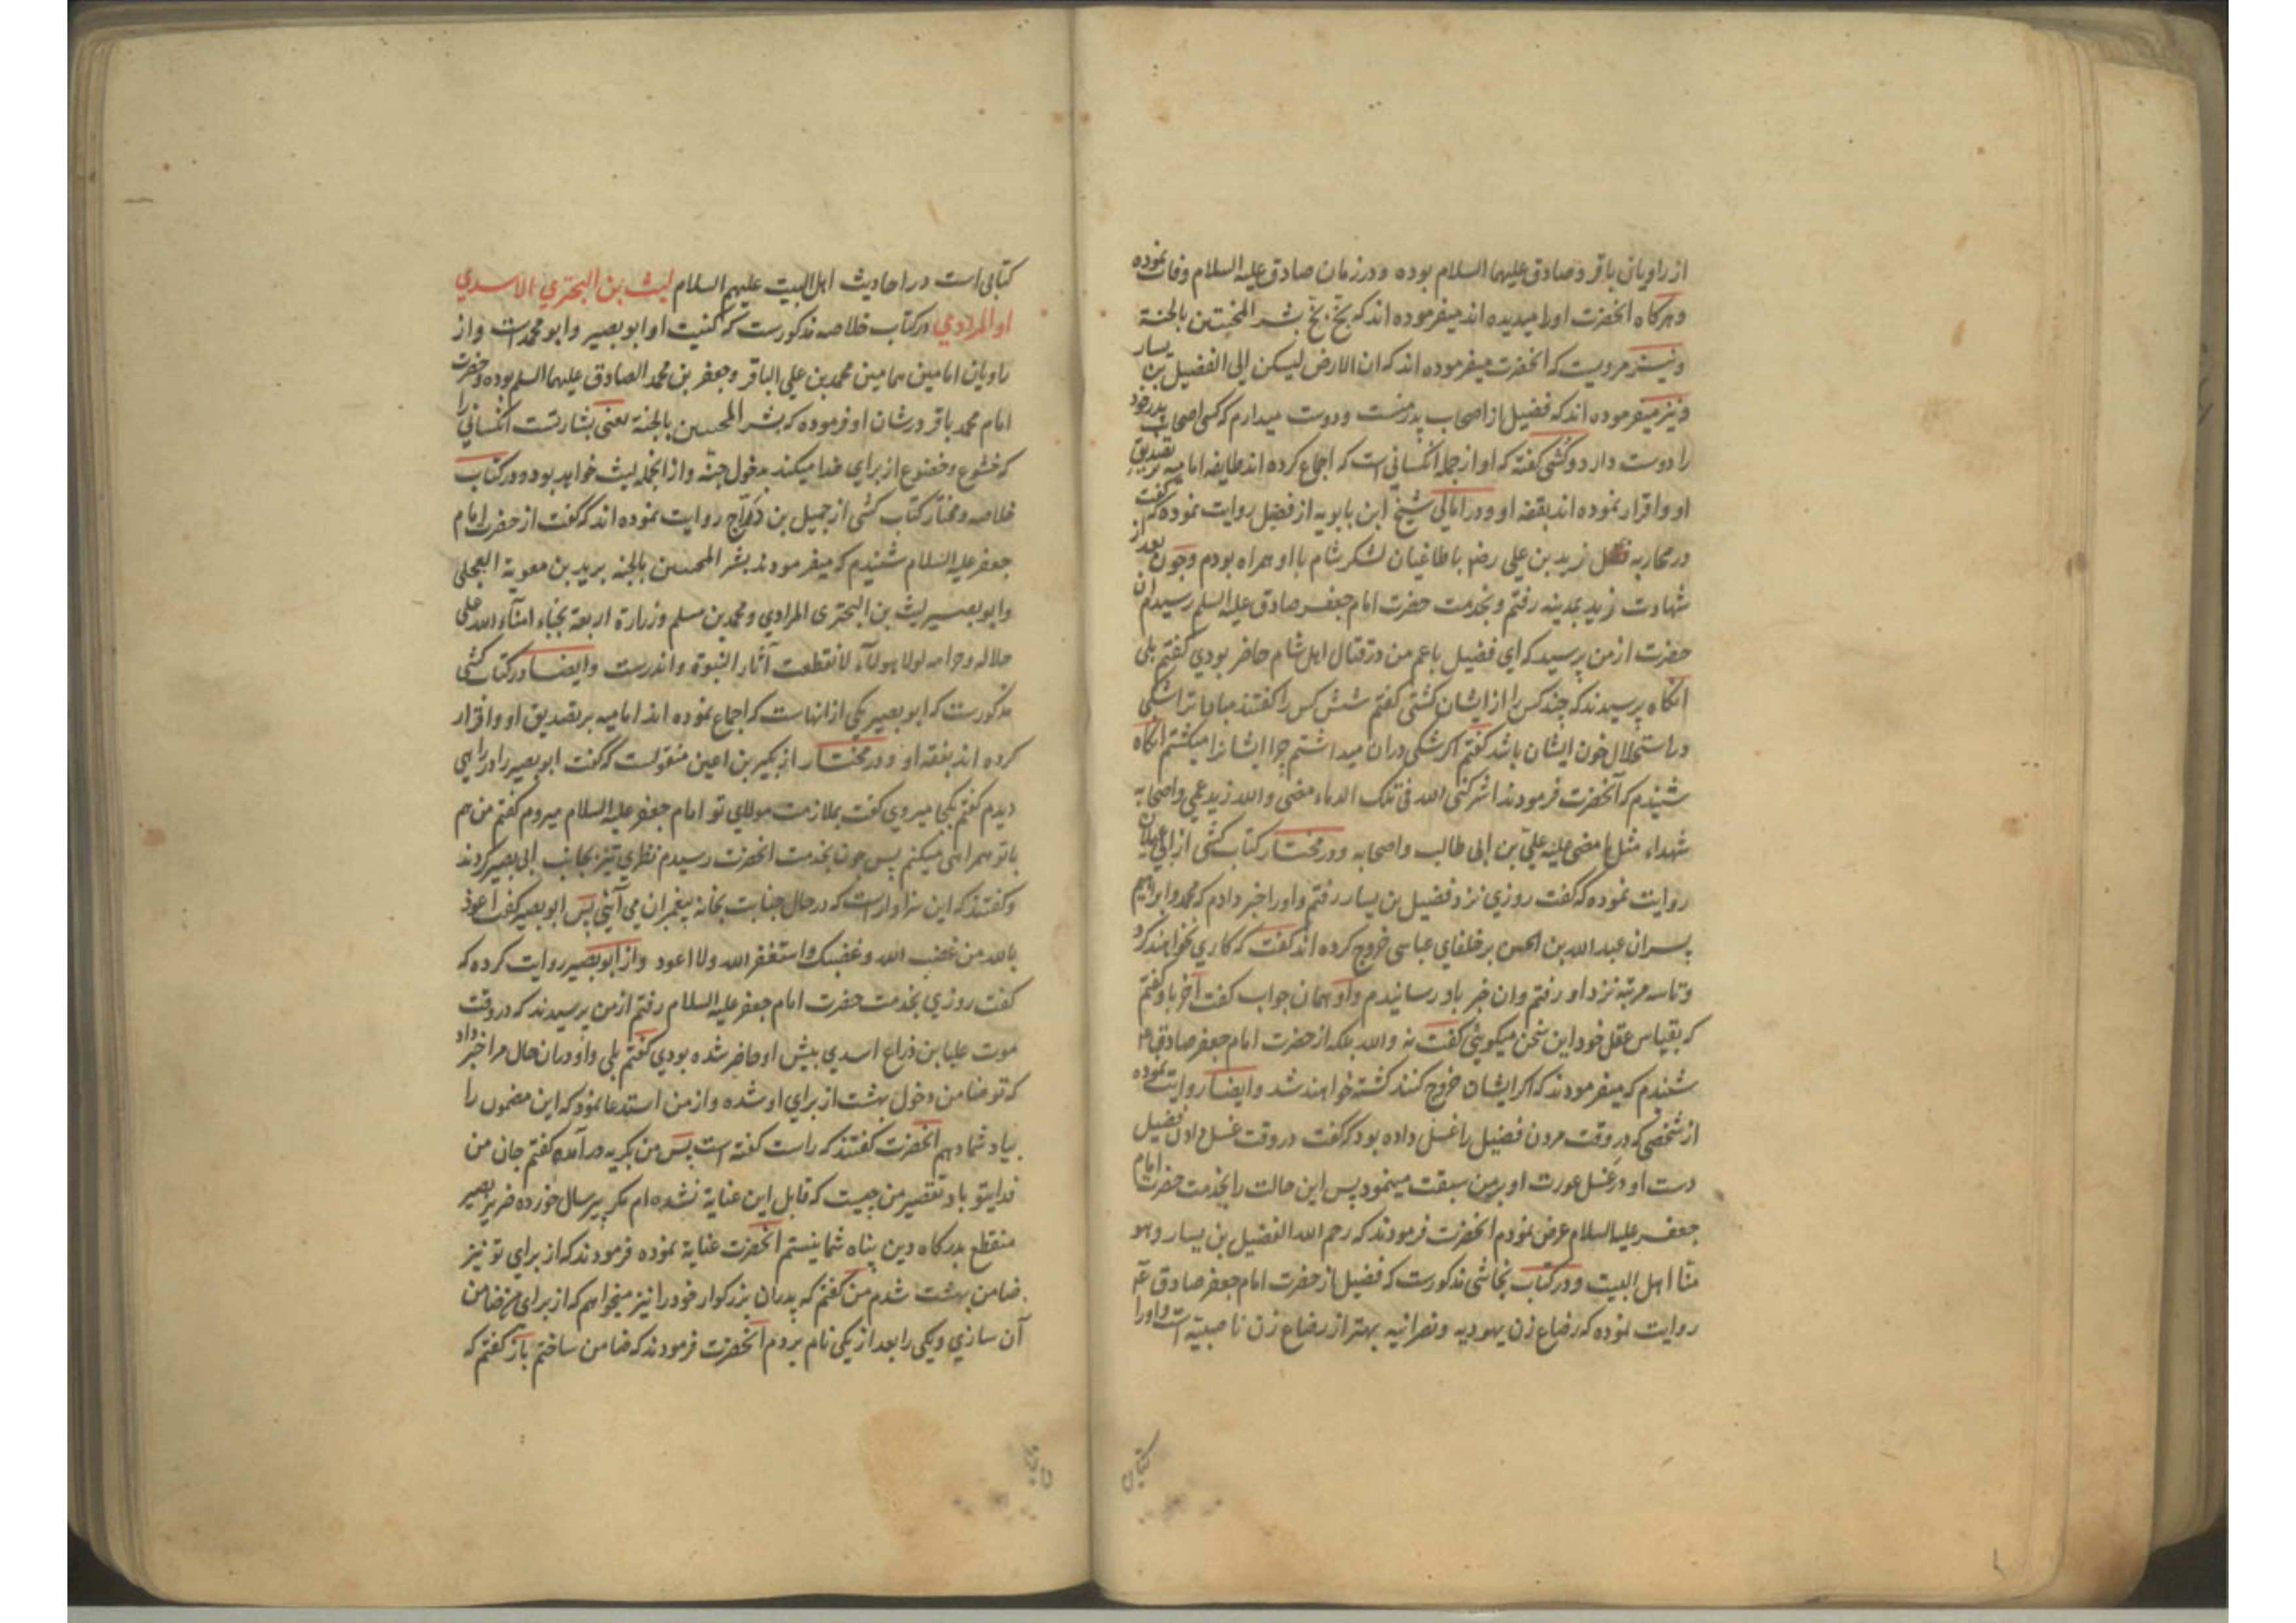 از راویان باقر و صادق علیهما السلام بوده و در زمان صادق علیه السلام وفات نموده
و هرکاه انحضرت او را میدیده اند میفرموده اند که بخّ بخّ بشر المخبتین بالجنة
و نیز مرویست که انحضرت میفرموده اند که ان الارض لیسکن الی الفضیل بن یسار
و نیز میفرموده اند که فضیل از اصحاب پدر منست و دوست میدارم که کسی اصحاب پدر خود
را دوست دارد و کشی کفته که او از جمله انکسانی است که اجماع کرده اند طایفه امامیه بر تصدیق
او و اقرار نموده اند بفقه او و در امالی شیخ ابن بابویه از فضیل روایت نموده که گفت
در محاربه زید بن علی رض با طاغیان لشکر شام با او همراه بودم و چون بعد از
شهادت زید بمدینه رفتم و بخدمت حضرت امام جعفر صادق علیه السلم رسیدم ان
حضرت از من پرسید که ای فضیل با عم من در قتال اهل شام حاضر بودي کفتم بلی
انکاه پرسیدند که چند کس را از ایشان کشتی کفتم شش کس را کفتند مبادا ترا شکی
در استحلال خون ایشان باشد کفتم اکر شکی در ان میداشتم چرا ایشانرا میکشتم انکاه
شنیدم که آنحضرت فرمودند اشرکنی الله فی تلک الدماء مضی والله زید عمی و اصحابه
شهداء مثل ما مضی علیه علی بن ابی طالب و اصحابه و در مختار کتاب کشی از ابی غیلان
روایت نموده که کفت روزي نزد فضیل بن یسار رفتم و او را خبر دادم که محمد و ابراهیم
پسران عبد الله بن الحسن بر خلفای عباسی خروج کرده اند کفت که کاري نخواهند کرد
و تا سه مرتبه نزد او رفتم و ان خبر باو رسانیدم و او همان جواب کفت آخر باو کفتم
که بقیاس عقل خود این سخن میکویئی کفت نه والله بلکه از حضرت امام جعفر صادق ع
شنیدم که میفرمودند که اکر ایشان خروج کنند کشته خواهند شد و ایضا روایت نموده
از شخصی که در وقت مردن فضیل را غسل داده بود که کفت در وقت غسل دادن فضیل
دست او در غسل عورت او بر من سبقت مینمود پس این حالت را بخدمت حضرت امام
جعفر علیه السلام عرض نمودم انحضرت فرمودند که رحم الله الفضیل بن یسار و هو
منّا اهل البیت و در کتاب نجاشی مذکورست که فضیل از حضرت امام جعفر صادق ع
روایت نموده که رضاع زن یهودیه و نصرانیه بهتر از رضاع زن ناصبیه است و او را
کتابی
کتابی است در احادیث اهل البیت علیهم السلام لیث بن البختري الاسدي
او المرادي در کتاب خلاصه مذکورست که کنیت او ابو بصیر و ابو محمد است و از
راویان امامین همامین محمد بن علی الباقر و جعفر بن محمد الصادق علیهما السلم بوده و حضرت
امام محمد باقر در شان او فرموده که بشر المخبتین بالجنة یعنی بشارتست انکسانی را
که خشوع و خضوع از براي خدا میکنند بدخول جنّه و از انجمله لیث خواهد بود و در کتاب
خلاصه و مختار کتاب کشی از جمیل بن درّاج روایت نموده اند که کفت از حضرت امام
جعفر علیه السلام شنیدم که میفرمودند بشر المخبتین بالجنه برید بن معویة العجلی
و ابو بصیر لیث بن البختری المرادي و محمد بن مسلم و زرارة اربعة نجباء امناء الله علی
حلاله و حرامه لولا هولاء لانقطعت آثار النبوة و اندرست و ایضا در کتاب کشی
مذکورست که ابو بصیر یکی از انهاست که اجماع نموده اند امامیه بر تصدیق او و اقرار
کرده اند بفقه او و در مختار از بکیر بن اعین منقولست که کفت ابو بصیر را در راهی
دیدم کفتم بکجا میروي کفت بملازمت مولاي تو امام جعفر علیه السلام میروم کفتم من هم
با تو همراهی میکنم پس چون بخدمت انحضرت رسیدم نظري تیز بجانب ابی بصیر کردند
و کفتند که این سزاوار است که در حال جنابت بخانه پیغمبران می آیئی پس ابو بصیر کفت اعوذ
بالله من غضب الله و غضبک و استغفر الله ولا اعود و از ابو بصیر روایت کرده که
کفت روزي بخدمت حضرت امام جعفر علیه السلام رفتم از من پرسیدند که در وقت
موت علیا بن ذراع اسدي پیش او حاضر شده بودي کفتم بلی و او در ان حال مرا خبر داد
که تو ضامن دخول بهشت از براي او شده و از من استدعا نمود که این مضمون را
بیاد شما دهم انحضرت کفتند که راست کفته است پس من بکریه در آمده کفتم جان من
فدایتو باد تقصیر من چیست که قابل این عنایة نشده ام مکر پیر سال خورده ضریر بصیر
منقطع بدرکاه دین پناه شما نیستم انحضرت عنایة نموده فرمودند که از براي تو نیز
ضامن بهشت شدم من کفتم که پدران بزرکوار خود را نیز میخواهم که از براي من ضامن
آن سازي و یکی را بعد از یکی نام بردم انحضرت فرمودند که ضامن ساختم باز کفتم که